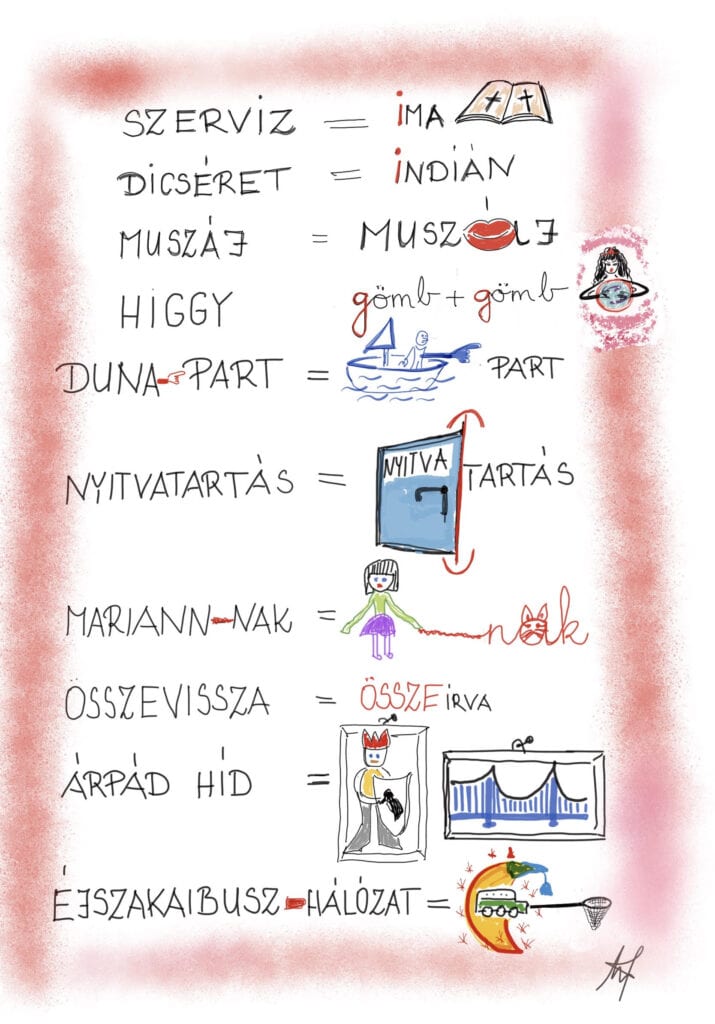 SZERVIZ = iMA
DICSÉRET = iNDIÁN
MUSZÁJ = MUSZÁJ
HIGGY gömb + gömb
DUNA-PART = PART
NYITVATARTÁS = NYITVA TARTÁS
MARIANN-NAK = nak
ÖSSZEVISSZA = ÖSSZEiRVA
ÁRPÁD HÍD =
ÉJSZAKAIBUSZ-HÁLÓZAT =